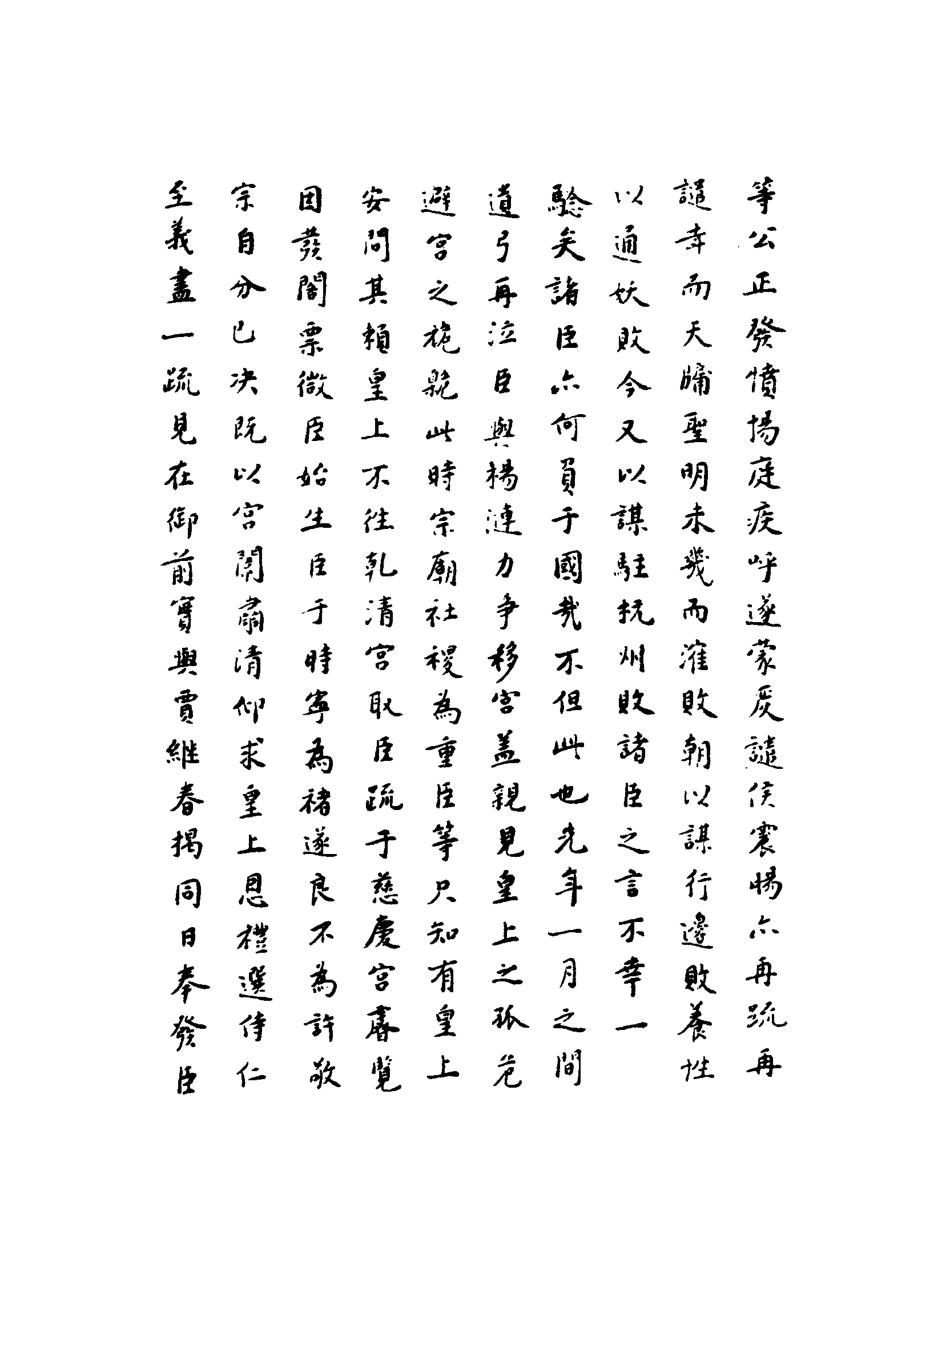 等公正發憤揚庭疾呼遂蒙戾譴侯震暘亦再疏再
譴幸而天牖聖明未幾而淮敗朝以謀行邊敗養性
以通妖敗今又以謀駐杭州敗諸臣之言不幸一
驗矣諸臣亦何負于國哉不但此也先年一月之間
遺弓再泣臣與楊漣力争移宮盖親見皇上之孤危
避宮之䠷䠷此時宗廟社稷為重臣等只知有皇上
安問其賴皇上不徃乹清宮取臣疏于慈慶宮睿覽
因發閣票微臣始生臣于時寧為褚遂良不為許敬
宗自分已决既以宮闈肅清仰求皇上恩禮選侍仁
至義盡一疏見在御前實與賈継春揭同日奉發臣